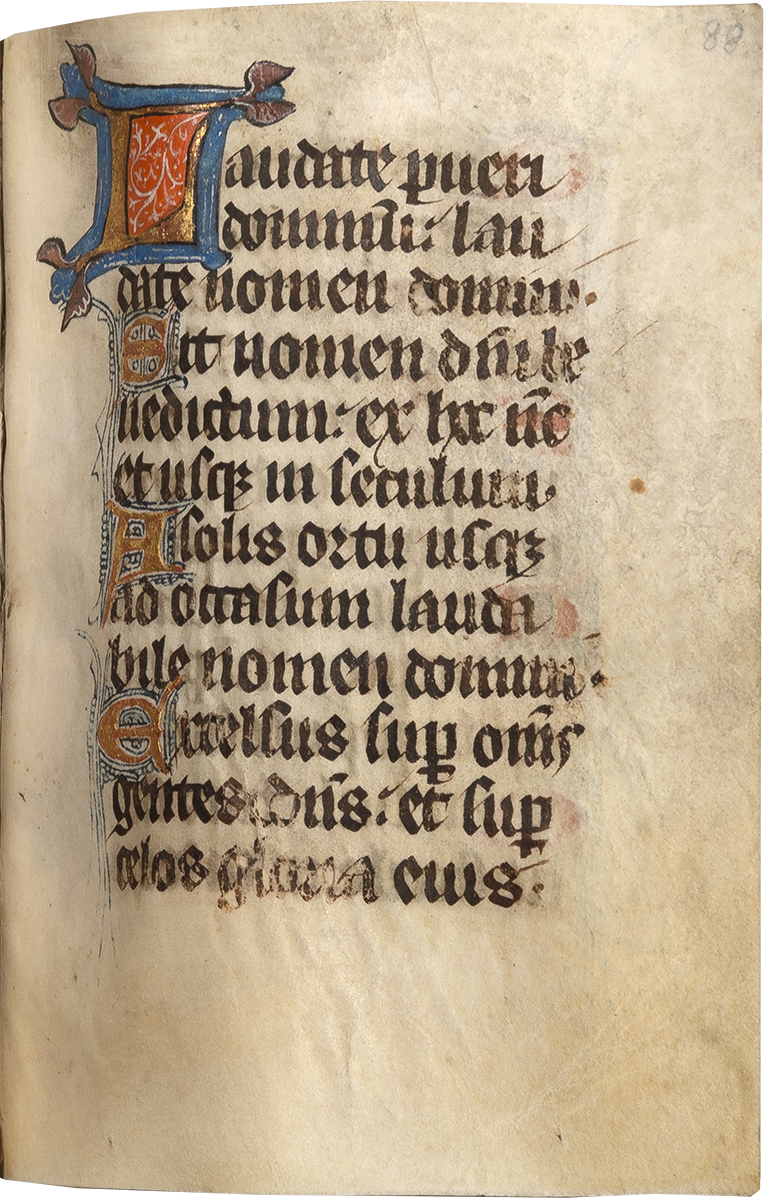 88
Laudate pueri
dominū: lau
date nomen domini.
Sit nomen dn̄i be
nedictum: ex hoc nūc
et usqꝫ in seculum
A solis ortu usqꝫ
ad occasum lauda
bile nomen domini.
Excelsus suꝑ om̄s
gentes dn̄s: et suꝑ
celos gloria eius.